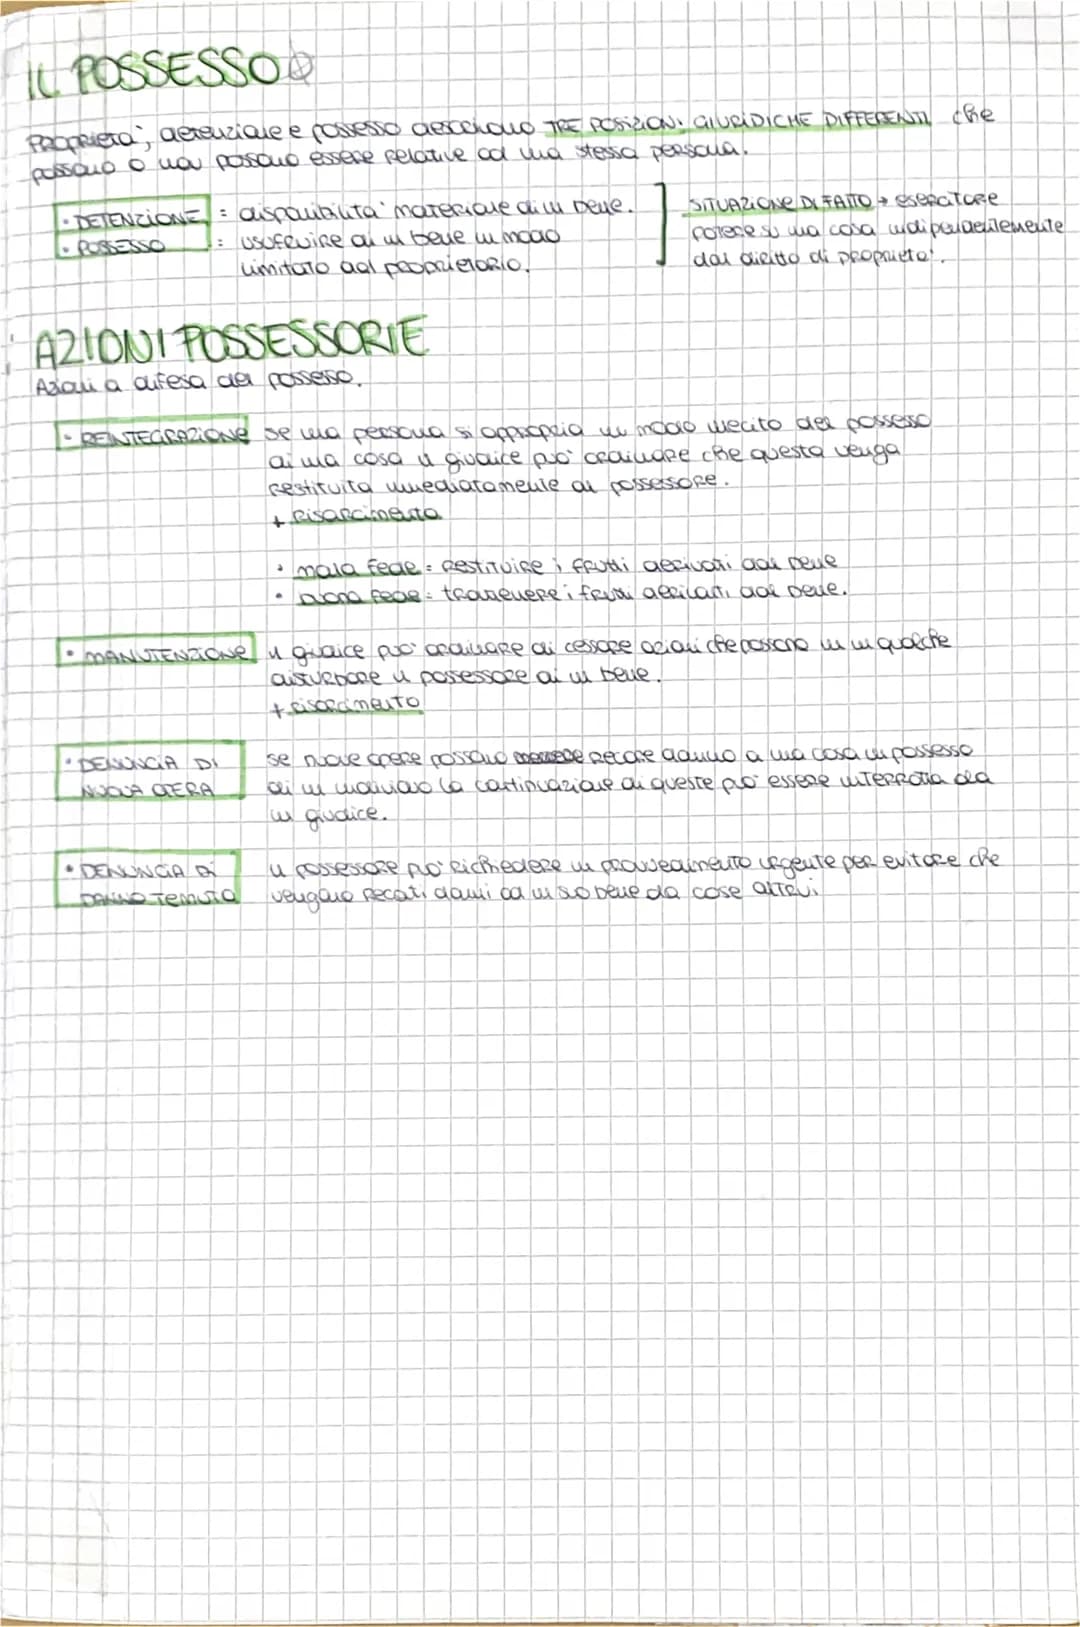 IL POSSESSO
PROPRIETA', detenzione e possesso descrivono TRE POSIZIONI GIURIDICHE DIFFERENTI, che
possono o non possono essere relative ad una stessa persona.
• DETENZIONE : disponibilità materiale di un bene.
• POSSESSO : usufruire di un bene in modo
limitato dal proprietario.
SITUAZIONE DI FATTO → esercitare
potere su una cosa indipendentemente
dal diritto di proprietà.
AZIONI POSSESSORIE
Azioni a difesa del possesso.
• REINTEGRAZIONE se una persona si appropria in modo illecito del possesso
di una cosa il giudice può ordinare che questa venga
restituita immediatamente al possessore.
+ risarcimento
• mala fede = restituire i frutti derivati dal bene
• buona fede = trattenere i frutti derivati dal bene.
• MANUTENZIONE il giudice può ordinare di cessare azioni che possono in un qualche
disturbare il possessore di un bene.
+ risarcimento
• DENUNCIA DI NUOVA OPERA
se nuove opere possono recare danno a una cosa in possesso
di un individuo la continuazione di queste può essere interrotta da
un giudice.
• DENUNCIA DI DANNO TEMUTO
il possessore può richiedere un provvedimento urgente per evitare che
vengano recati danni ad un suo bene da cose altrui.